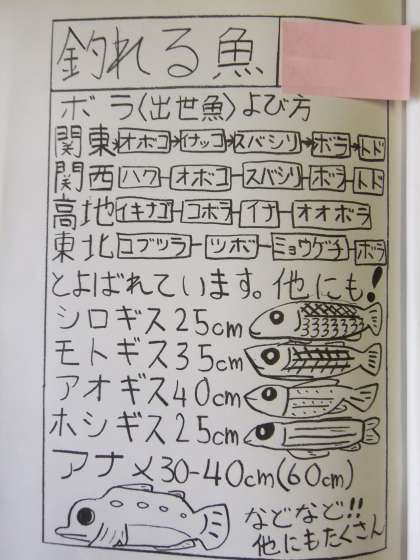 釣れる魚
ボラ〈出世魚〉よび方
関東→オボコ→イナッコ→スバシリ→ボラ→トド
関西 ハク－オボコ－スバシリ－ボラ－トド
高地 イキナゴ－コボラ－イナ－オオボラ
東北 コブツラ－ツボ－ミョウゲチ－ボラ
とよばれています。他にも!
シロギス25cm
モトギス35cm
アオギス40cm
ホシギス25cm
アナメ30-40cm(60cm)
などなど!!
他にもたくさん